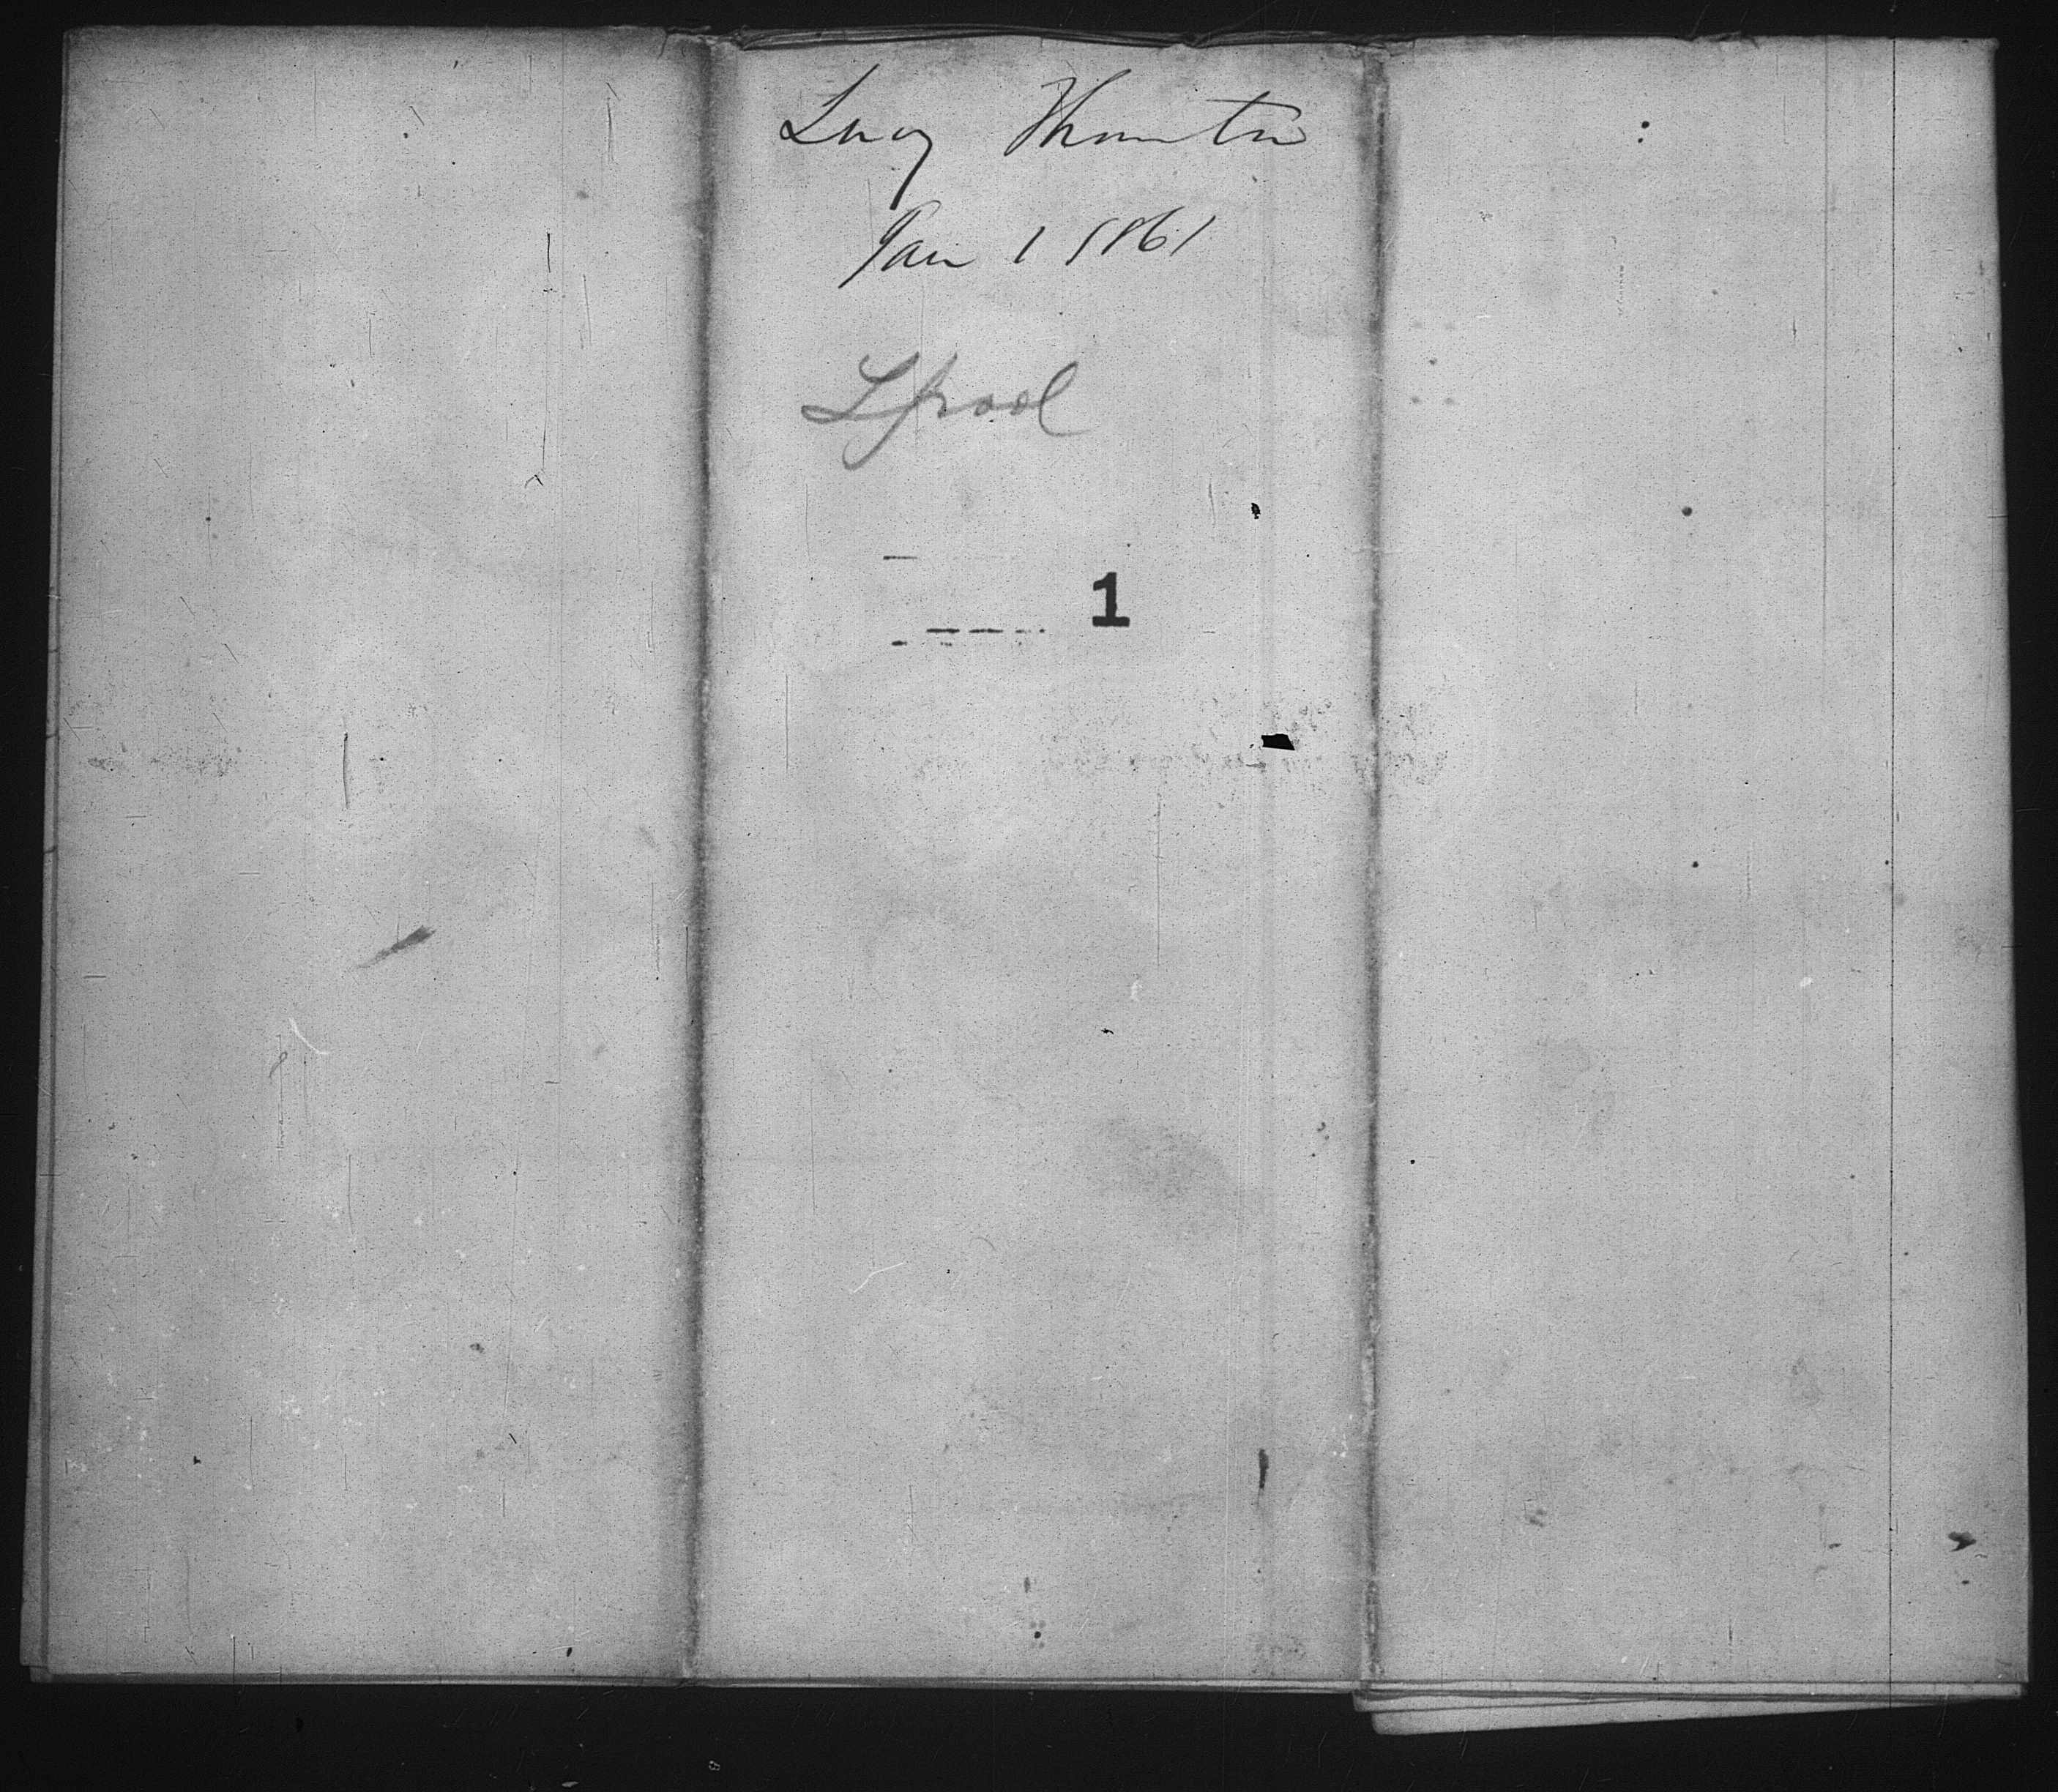 Lucy Thornton
Jan 1 1861
Lpool
1